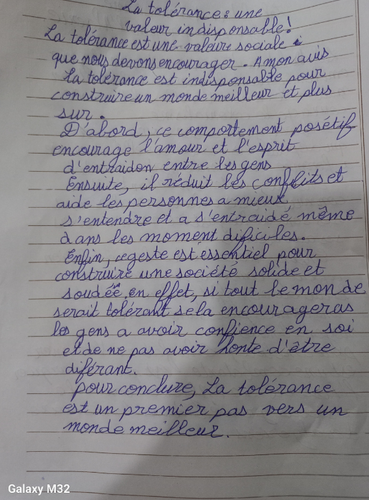 La tolérance : une
valeur indispensable!
La tolérance est une valeure sociale
que nous devons encourager. A mon avis
la tolérance est indispensable pour
construire un monde meilleur et plus
sur.
D'abord, ce comportement posétif
encourage l'amour et l'esprit
d'entraidon entre les gens
Ensuite, il réduit les conflits et
aide les personnes a mieux
s'entendre et a s'entraidé même
dans les moment dificiles.
Enfin, ce geste est essentiel pour
construire une société solide et
soudée, en effet, si tout le monde
serait tolérant sela encourageras
les gens a avoir confience en soi
et de ne pas avoir honte d'être
diférant.
pour conclure, La tolérance
est un premier pas vers un
monde meilleur.
Galaxy M32